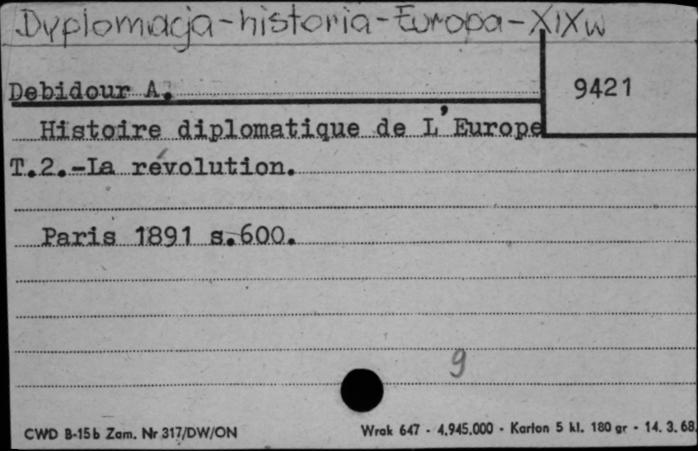 Dyplomacja-historia-Europa-XIXw
Debidour A.
9421
Histoire diplomatique de L'Europe
T.2.-La révolution.
Paris 1891 s.600.
9
CWD B-15b Zam. Nr 317/DW/ON
Wrak 647 - 4.945.000 - Karton 5 kl. 180 gr - 14. 3. 68.